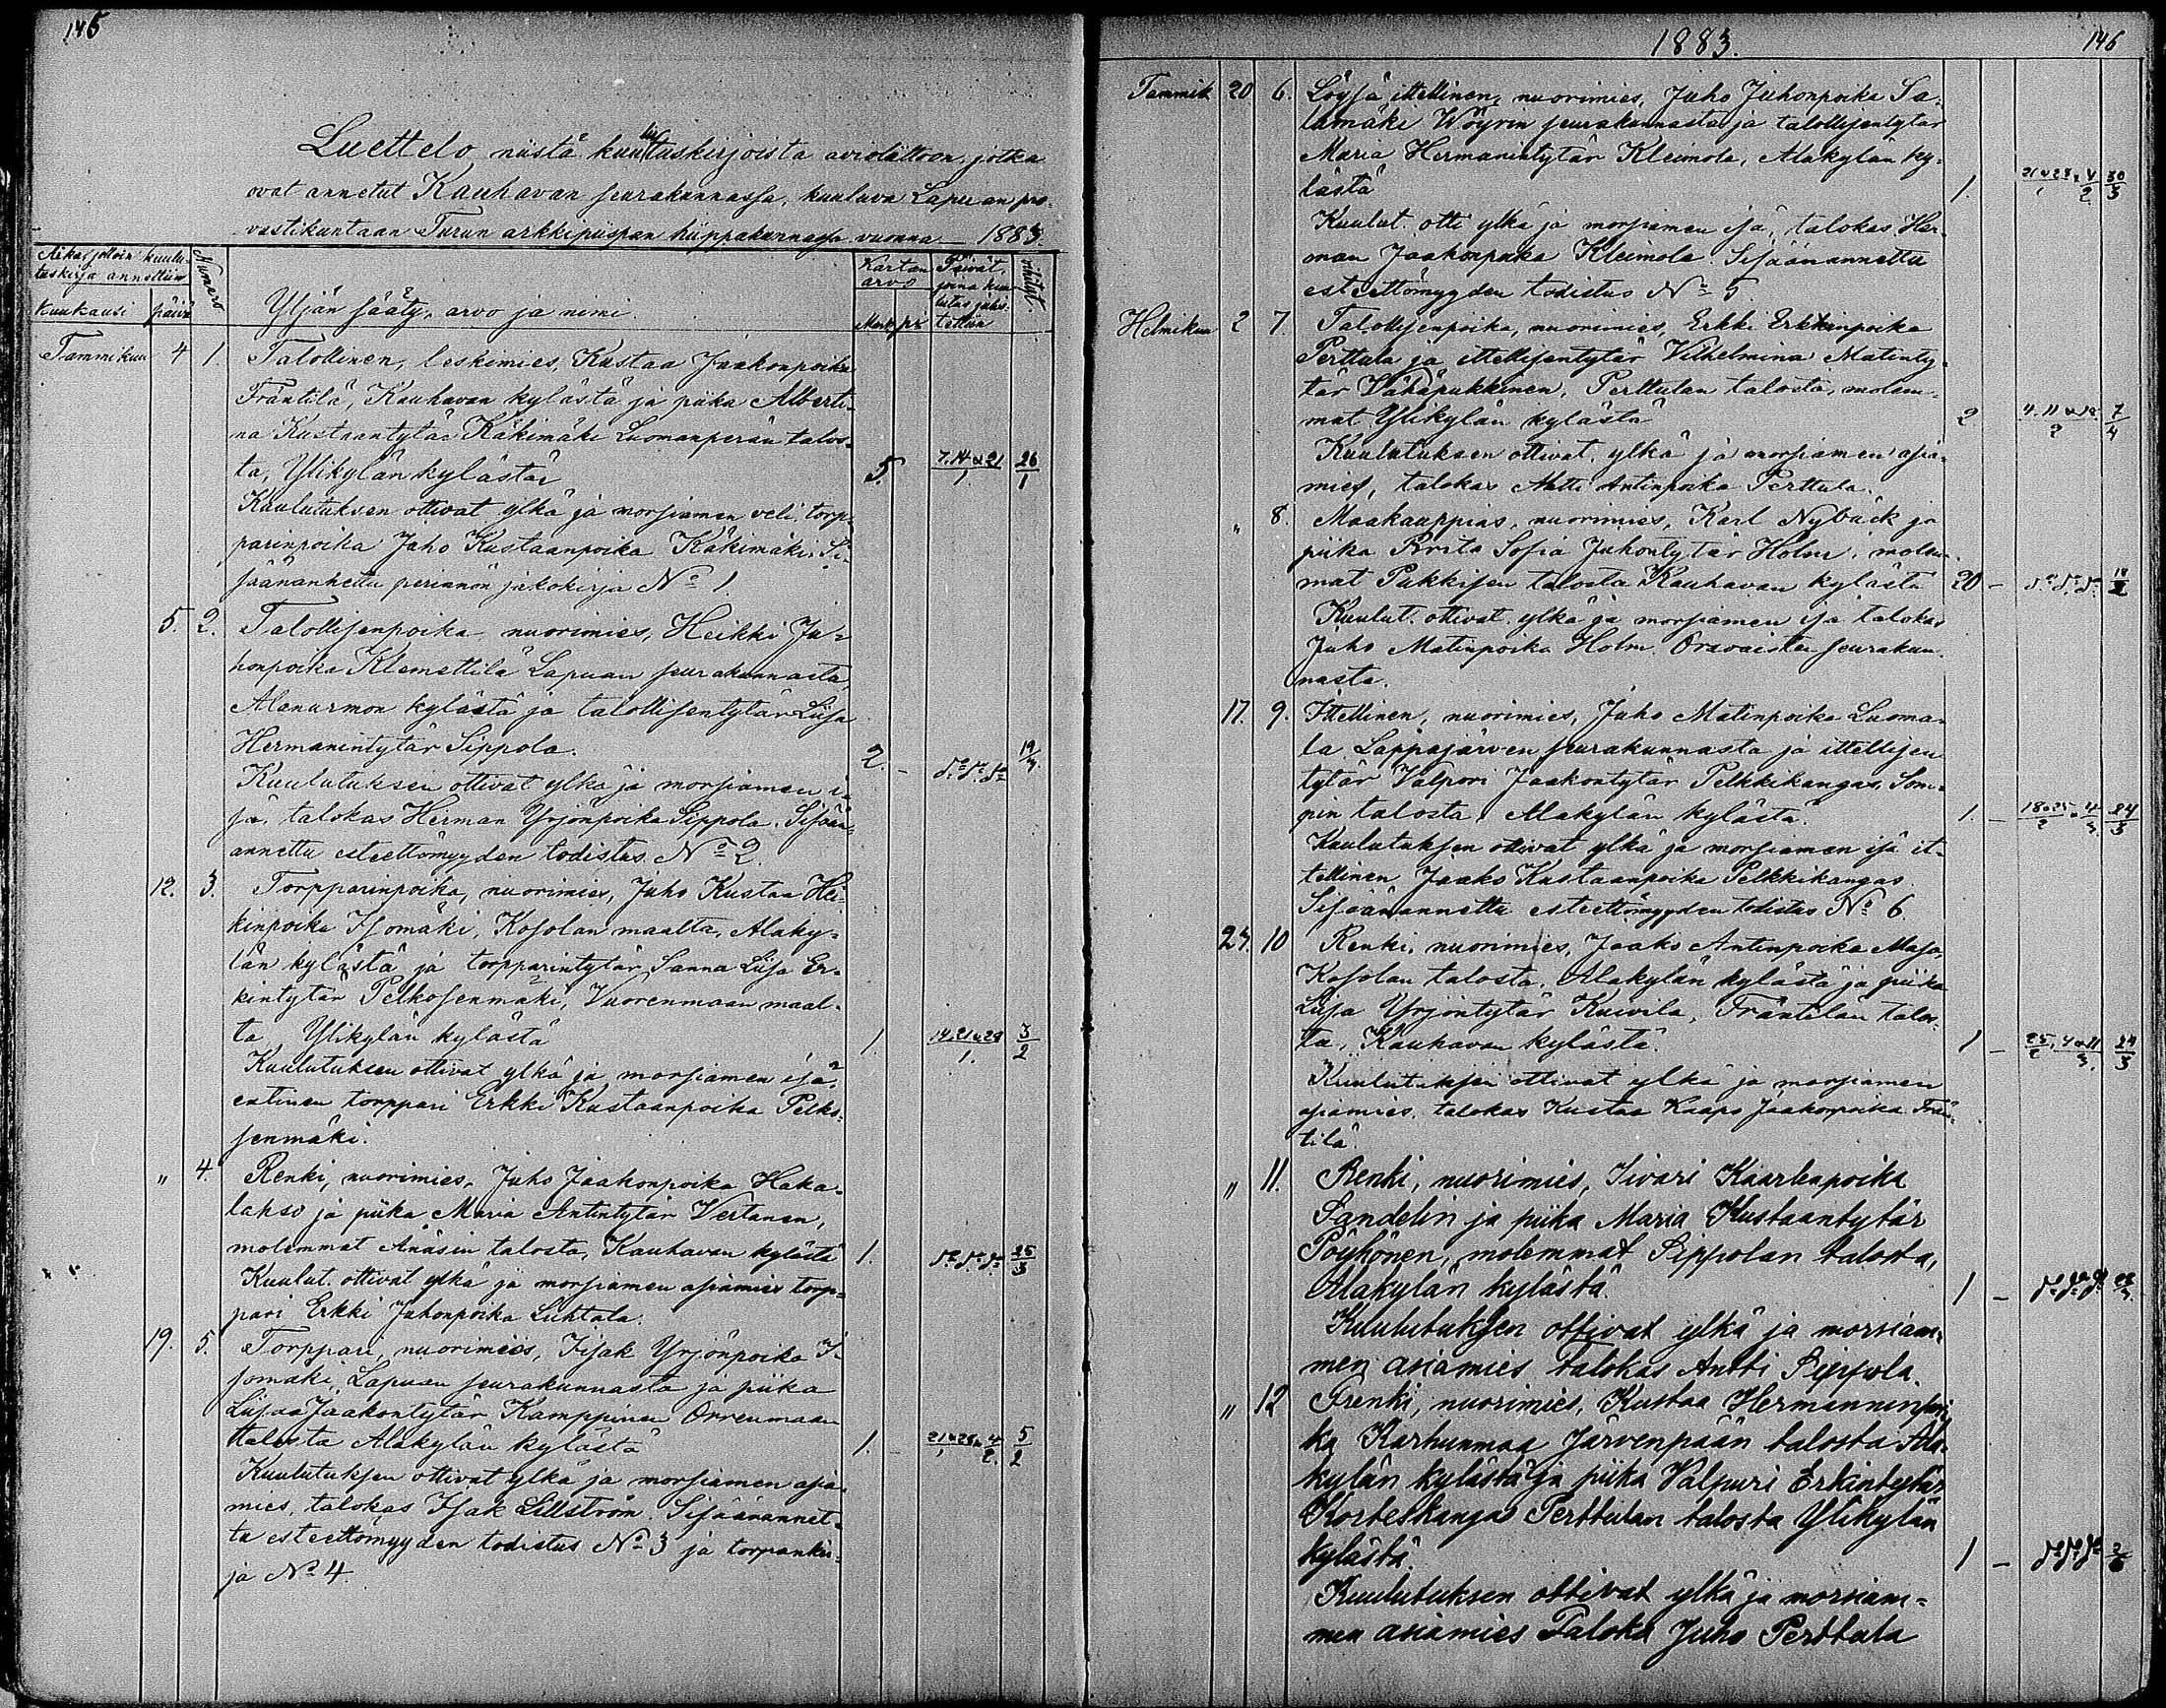 145
Luettelo niistä kuulutuskirjoista avioliittoon, jotka
ovat annetut Kauhavan seurakunnassa, kuuluva Lapuan pro-
vastikuntaan Turun arkkipiispan hiippakunnassa vuonna 1883.
Aika, jolloin kuulu-
tuskirja annettiin
Kuukausi päivä
Numero
Yljän sääty, arvo ja nimi.
Kartan arvo
Mark. pi.
Päivät, joina kuu-
lutus julis-
tettiin
vihityt.
Tammikuu 4 1. Talollinen, leskimies, Kustaa Jaakonpoika
Fräntilä, Kauhavan kylästä ja piika Alberti-
na Kustaantytär Käkimäki Luomanperän talos-
ta, Ylikylän kylästä 5. 7.14 a 21/1 26/1
Kuulutuksen ottivat ylkä ja morsiamen veli, torp-
parinpoika Juho Kustaanpoika Käkimäki. Si-
säänannettu perinnön jakokirja No 1.
5. 2. Talollisenpoika, nuorimies, Heikki Ju-
honpoika Klemettilä Lapuan seurakunnasta,
Alanurmon kylästä ja talollisentytär Liisa
Hermanintytär Sippola. 2. - do do do 19/3
Kuulutuksen ottivat ylkä ja morsiamen i-
sä, talokas Herman Yrjönpoika Sippola. Sisään-
annettu esteettömyyden todistus No 2.
12. 3. Torpparinpoika, nuorimies, Juho Kustaa Hei-
kinpoika Isomäki, Kosolan maalta, Alaky-
län kylästä ja torpparintytär Sanna Liisa Er-
kintytär Pelkosenmäki, Vuorenmaan maal-
ta Ylikylän kylästä 1. 14.21 a 28/1. 3/2
Kuulutuksen ottivat ylkä ja morsiamen isä,
entinen torppari Erkki Kustaanpoika Pelko-
senmäki.
" 4. Renki, nuorimies, Juho Jaakonpoika Haka-
lahso ja piika Maria Antintytär Vertanen,
molemmat Änäsin talosta, Kauhavan kylästä 1. do do do 25/3
Kuulut. ottivat ylkä ja morsiamen asiamies torp-
pari Erkki Juhonpoika Luhtala.
19. 5. Torppari, nuorimies, Iisak Yrjönpoika I-
somäki, Lapuan seurakunnasta ja piika
Liisa Jaakontytär Kamppinen Orrenmaan
talosta Alakylän kylästä 1. - 21 a 28/1 a 4/2. 5/2
Kuulutuksen ottivat ylkä ja morsiamen asia-
mies, talokas Isak Lillström. Sisäänannet-
tu esteettömyyden todistus No 3 ja torpankir-
ja No 4.
1883. 146
Tammik 20 6. Löysä ittellinen, nuorimies, Juho Juhonpoika Sa-
lamäki Wöyrin seurakunnasta ja talollisentytär
Maria Hermanintytär Kleimola, Alakylän ky-
lästä 1. 21 a 28/1 a 4/2 30/3
Kuulut. otti ylkä ja morsiamen isä, talokas Her-
man Jaakonpoika Kleimola. Sisäänannettu
esteettömyyden todistus No 5.
Helmikuu 2 7. Talollisenpoika, nuorimies, Erkki Erkkinpoika
Perttula ja ittellisentytär Vilhelmina Matinty-
tär Vähäpukkinen, Perttulan talosta, molem-
mat Ylikylän kylästä 2 4.11 a 18/2 7/4
Kuulutuksen ottivat ylkä ja morsiamen asia-
mies, talokas Matti Antinpoika Perttula.
" 8. Maakauppias, nuorimies, Karl Nybäck ja
piika Brita Sofia Juhontytär Holm, molem-
mat Pukkisen talosta Kauhavan kylästä 20 - do do do 18/2
Kuulut. ottivat ylkä ja morsiamen isä talokas
Juho Matinpoika Holm Oravaisten seurakun-
nasta.
17. 9. Ittellinen, nuorimies, Juho Matinpoika Luoma-
la Lappajärven seurakunnasta ja ittellisen
tytär Valpori Jaakontytär Pelkkikangas, Som-
pin talosta, Alakylän kylästä. 1. - 18 a 25/2 a 4/3 24/3
Kuulutuksen ottivat ylkä ja morsiamen isä it-
tellinen Jaako Kustaanpoika Pelkkikangas.
Sisäänannettu esteettömyyden todistus No 6.
24. 10 Renki, nuorimies, Jaako Antinpoika Maso,
Kosolan talosta, Alakylän kylästä ja piika
Liisa Yrjöntytär Kuivila, Fräntilän talos-
ta, Kauhavan kylästä. 1 - 25/2, 4 a 11/3. 24/3
Kuulutuksen ottivat ylkä ja morsiamen
asiamies, talokas Kustaa Kaapo Jaakonpoika Frän-
tilä.
" 11. Renki, nuorimies, Iivari Kaarlenpoika
Sandelin ja piika Maria Kustaantytär
Pöyhönen, molemmat Sippolan talosta,
Alakylän kylästä. 1 - do do do
Kuulutuksen ottivat ylkä ja morsiam-
men asiamies Talokas Antti Sippola.
" 12 Frenki, nuorimies, Kustaa Hermanninpoi-
ka Karhunmaa Järvenpään talosta Ala-
kylän kylästä ja piika Valpuri Erkintytär
Korteskangas Perttulan talosta Ylikylän
kylästä. 1 - do do do
Kuulutuksen ottivat ylkä ja morsiam-
men asiamies Taloka Juho Perttula